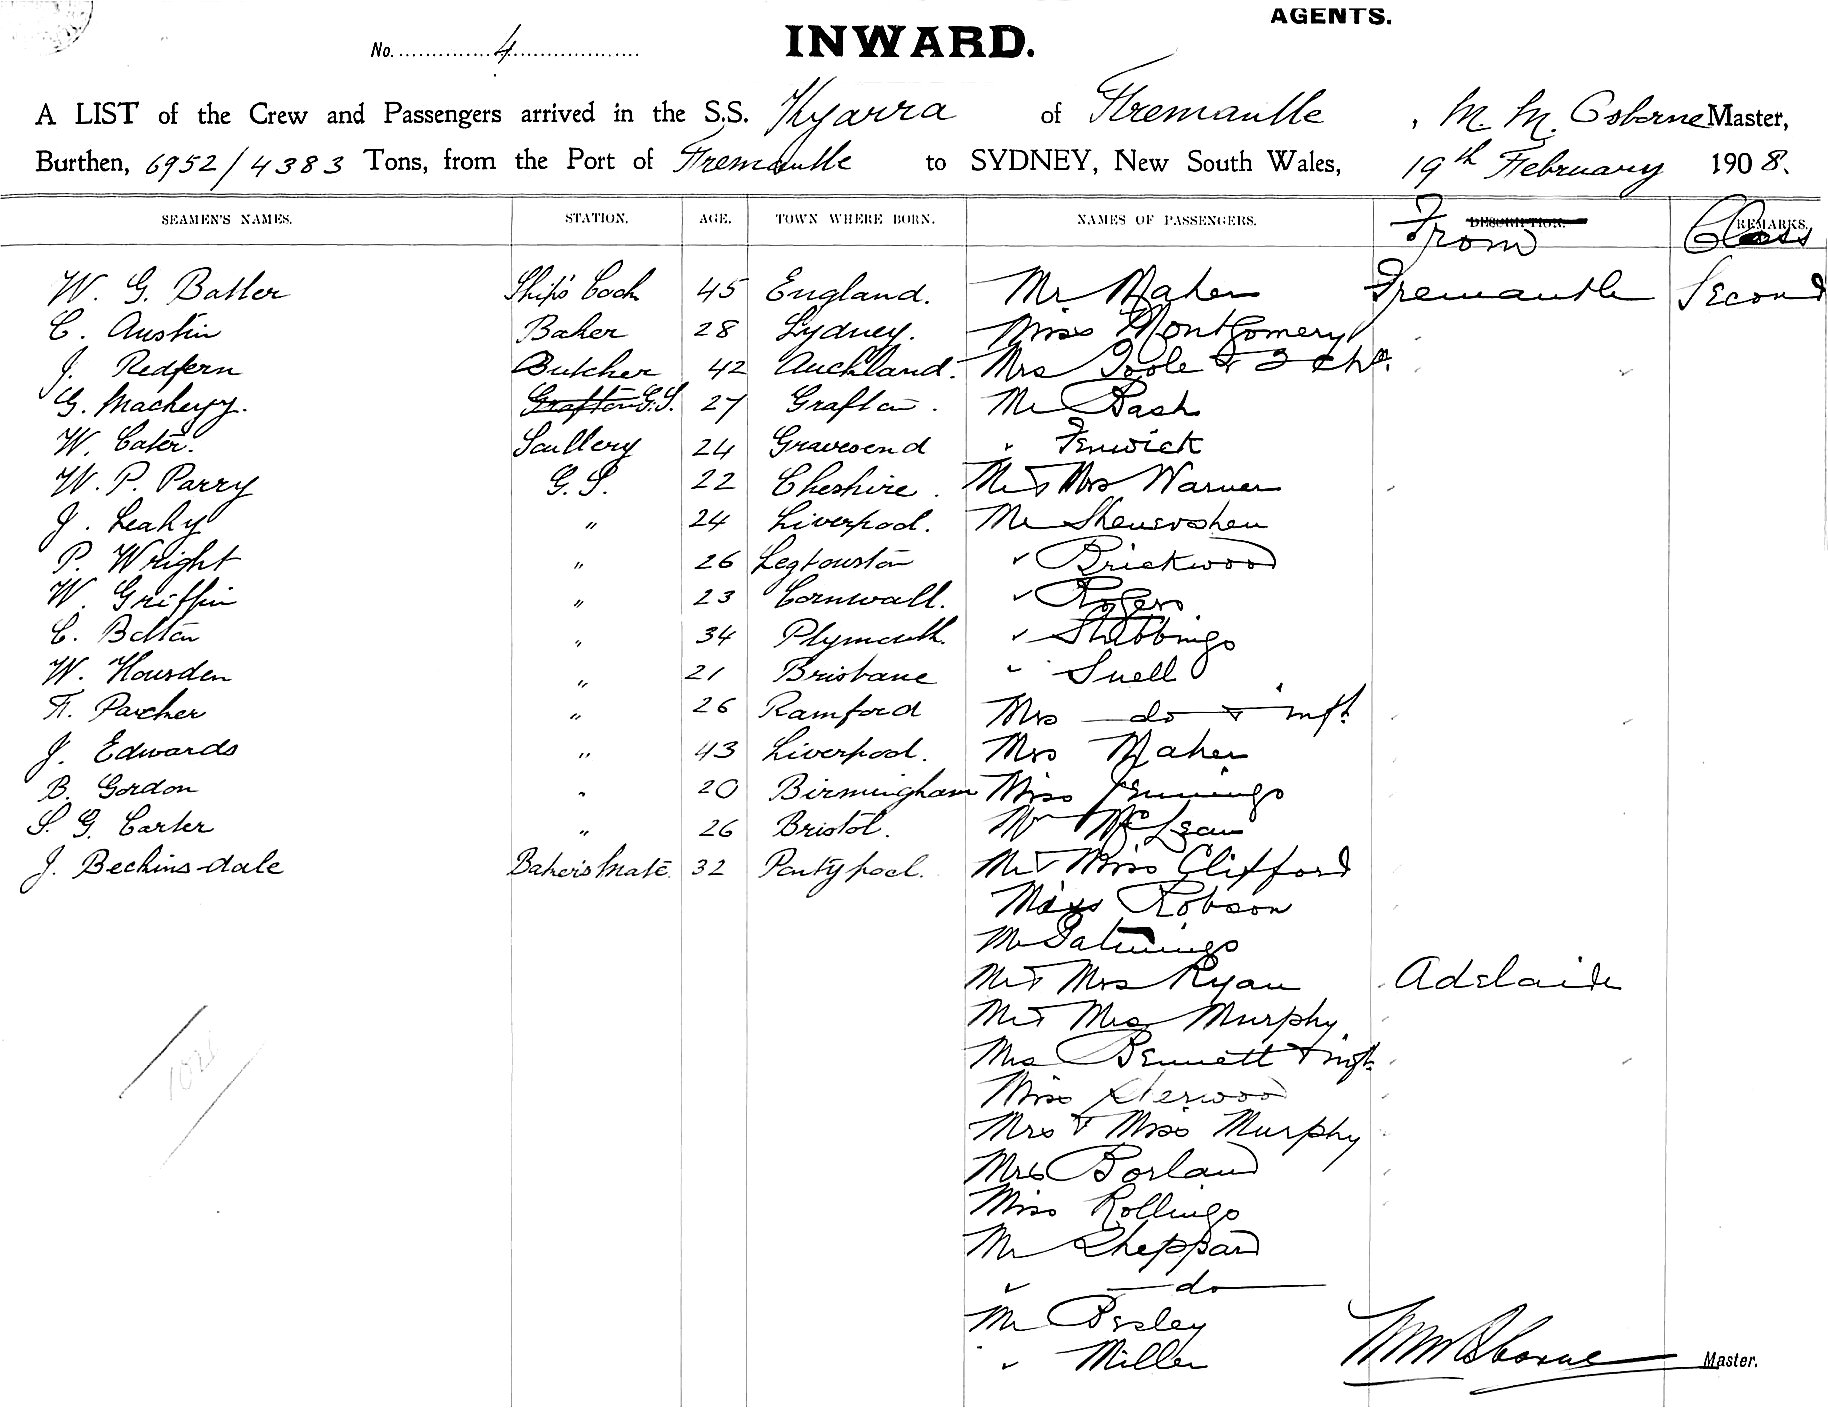 AGENTS.
No. 4 INWARD.
A LIST of the Crew and Passengers arrived in the S.S. Kyarra of Fremantle, M. M. Osborne Master,
Burthen, 6952/4383 Tons, from the Port of Fremantle to SYDNEY, New South Wales, 19th February 1908.
SEAMEN'S NAMES. STATION. AGE. TOWN WHERE BORN. NAMES OF PASSENGERS. DESCRIPTION. From REMARKS. Class
W. G. Butler Ship's Cook 45 England. Mr Maher Fremantle Second
C. Austin Baker 28 Sydney. Miss Montgomery
J. Redfern Butcher 42 Auckland. Mrs Toole & 2 chd.
G. Mackeyy. Grafton G.S. 27 Grafton. Mr Bash
W. Cater. Scullery 24 Gravesend " Fenwick
W. P. Parry G. S. 22 Cheshire. Mr & Mrs Warner
J. Leahy " 24 Liverpool. Mr
P. Wright " 26 " Brickwood
W. Griffin " 23 Cornwall. " Rogers
C. Bolton " 34 Plymouth. " Stubbings
W. Housden " 21 Brisbane " Snell
F. Parcher " 26 Ramford Mrs do & inft.
J. Edwards " 43 Liverpool. Mrs Maher
B. Gordon " 20 Birmingham Miss Jennings
S. G. Carter " 26 Bristol. Mr McLean
J. Beckins-dale Baker's Mate. 32 Pontypool. Mr & Miss Clifford
Miss Robson
Mr
Mr & Mrs Ryan Adelaide
Mr & Mrs Murphy
Mrs Bennett & inft.
Miss Sherwood
Mrs & Miss Murphy
Mrs Borland
Miss Rollings
Mr Sheppard
" do
Mr Besley
" Miller
M M Osborne Master.